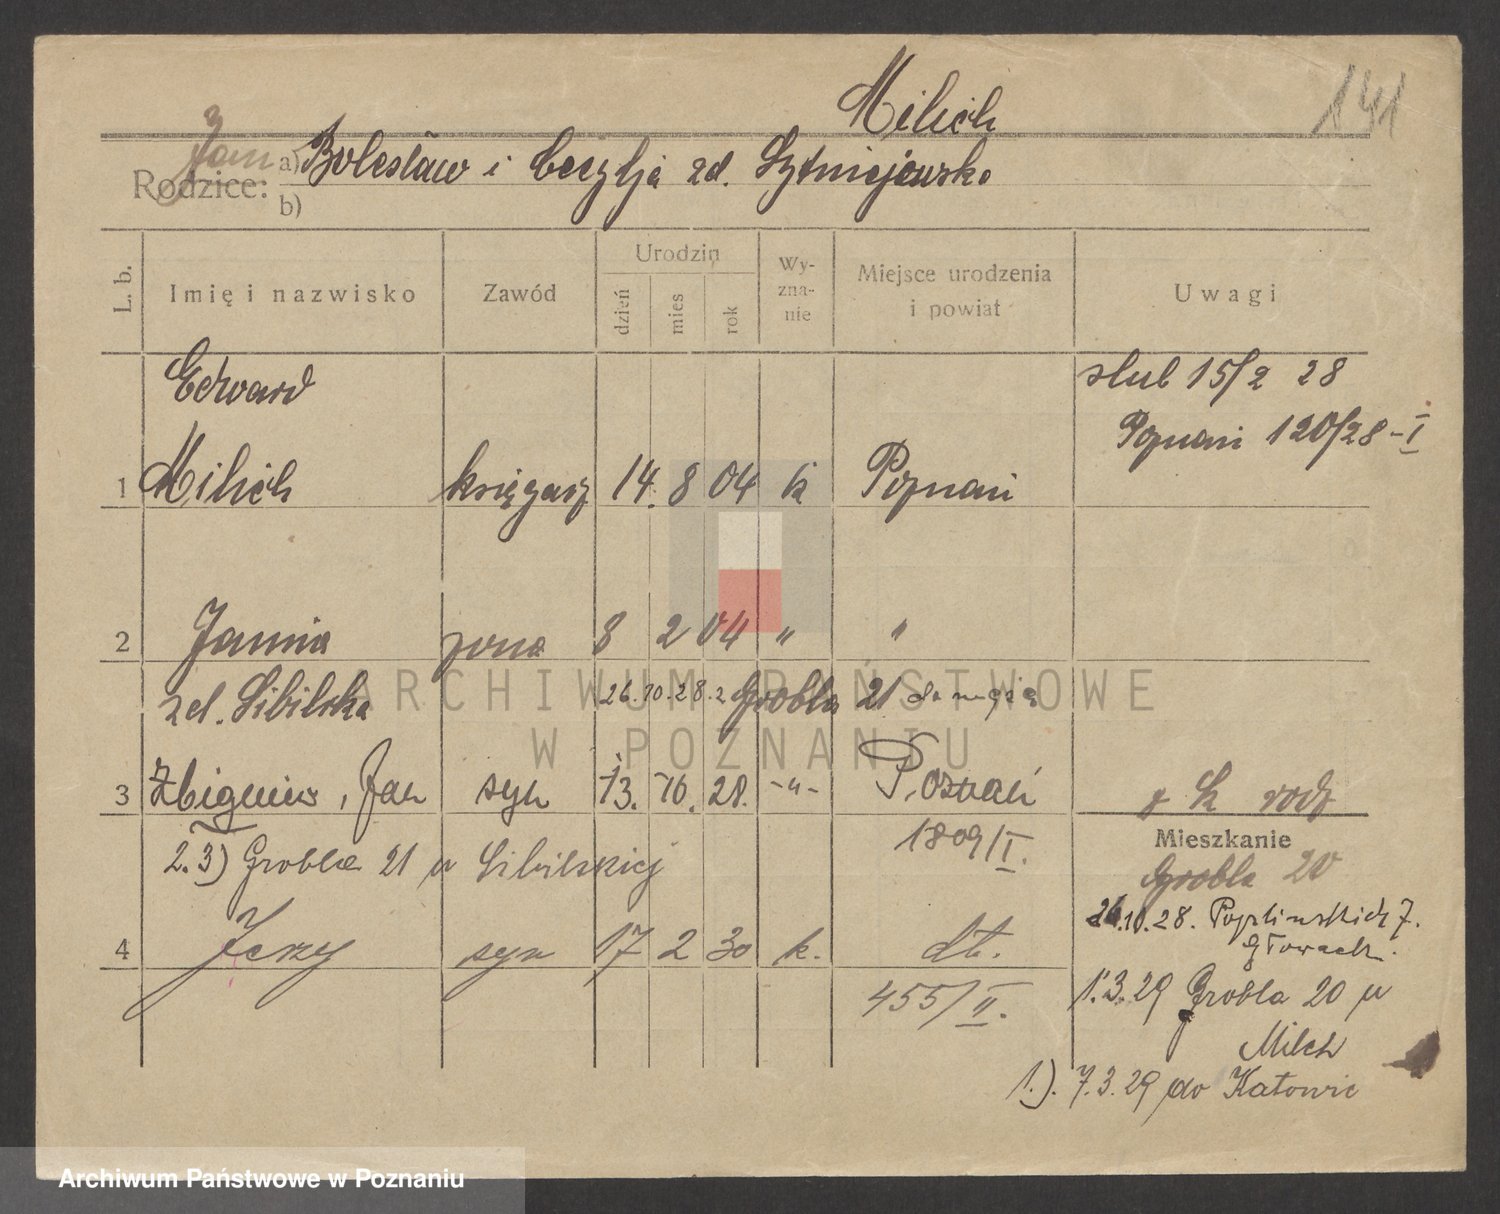 Milich
141
Jan
Rodzice: a) Bolesław i Cecylja zd. Sytniejewsko
b)
L. b. Imię i nazwisko Zawód Urodzin dzień mies rok Wyznanie Miejsce urodzenia i powiat Uwagi
Edward slub 15/2 28
Poznań 120/28-I
1 Milich księgarz 14. 8 04 k Poznań
2 Janina żona 8 2 04 " "
zd. Sibilska 26.10.28. z Grobla 21 do męża
3 Zbigniew, Jan syn 13. 10. 28. -"- Poznań
1809/I.
2.3) Grobla 21 u Sibilskiej
Mieszkanie
Grobla 20
26.10.28. Poplinskich 7.
Głowach.
4 Jerzy syn 17 2 30 k. dt.
455/II.
1.3.29 Grobla 20 u
Milch
1.). 7.3.29 do Katowic
ARCHIWUM PAŃSTWOWE
W POZNANIU
Archiwum Państwowe w Poznaniu